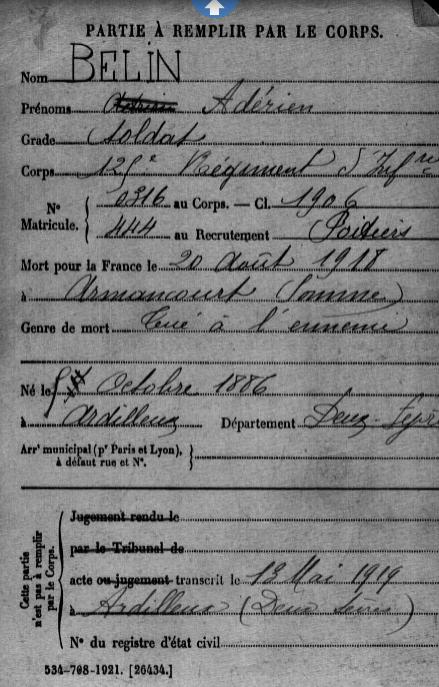 PARTIE À REMPLIR PAR LE CORPS.
Nom BELIN
Prénoms Adérien
Grade Soldat
Corps 125e Régiment d'Infrie
No Matricule. 0316 au Corps. — Cl. 1906
444 au Recrutement Poitiers
Mort pour la France le 20 Août 1918
à Armancourt (Somme)
Genre de mort Tué à l'ennemi
Né le Octobre 1886
à Ardilleux Département Deux-Sèvres
Arrt municipal (pr Paris et Lyon), à défaut rue et No.
Cette partie n'est pas à remplir par le Corps.
Jugement rendu le
par le Tribunal de
acte ou jugement transcrit le 13 Mai 1919
à Ardilleux (Deux Sèvres)
No du registre d'état civil
534-708-1921. [26434.]